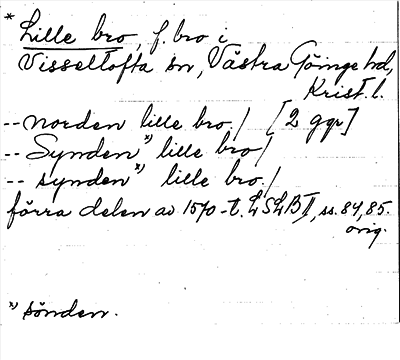 * Lille bro, f. bro i
Visseltofta sn, Västra Göinge hd,
Krist. l.
-- norden lille bro./ [2 ggr]
-- Synden *) lille bro/
-- synden *) lille bro./
förra delen av 1570-t. LSLB II, ss. 84, 85.
orig.
*) sönden.